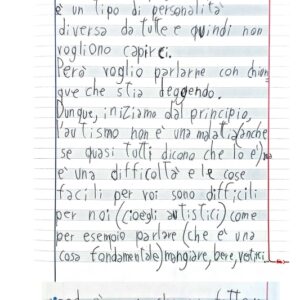 è un tipo di personalità
diversa da tutte e quindi non
vogliono capirci.
Però voglio parlarne con chiun
que che stia leggendo.
Dunque, iniziamo dal principio,
l'autismo non è una malattia (anche
se quasi tutti dicono che lo è) ma
è una difficoltà e le cose
facili per voi sono difficili
per noi (cioè gli autistici) come
per esempio parlare (che è una
cosa fondamentale) mangiare, bere, vestirci